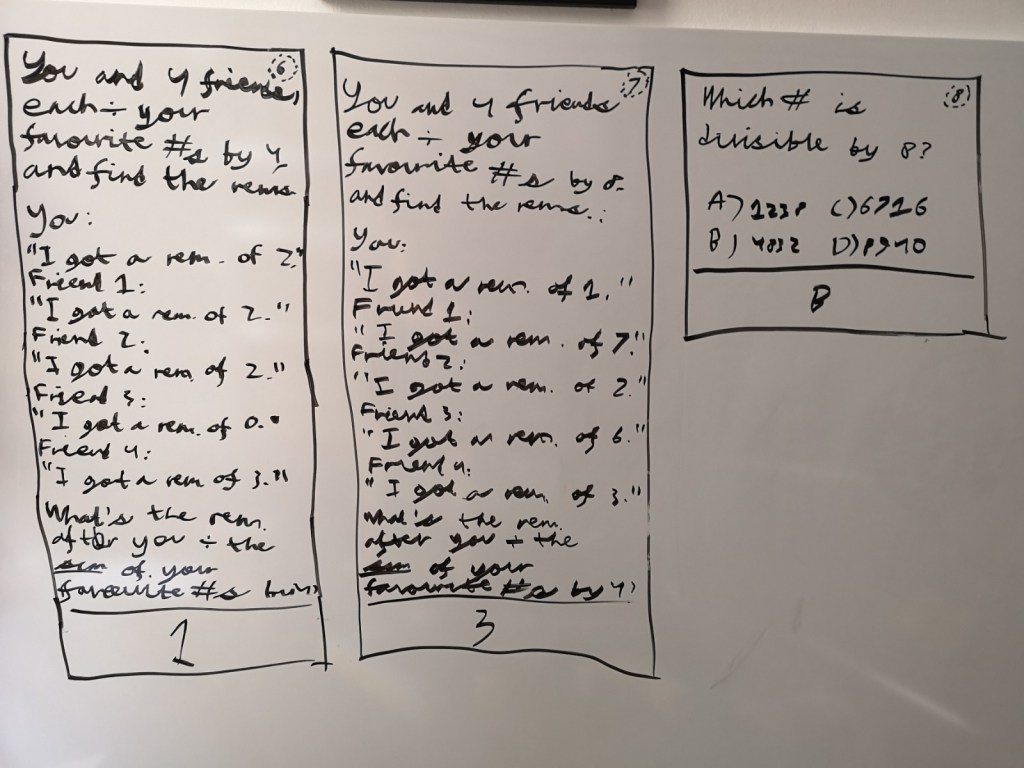 6
You and 4 friends,
each ÷ your
favourite #s by 4
and find the rems.
You:
"I got a rem. of 2."
Friend 1:
"I got a rem. of 2."
Friend 2:
"I got a rem. of 2."
Friend 3:
"I got a rem. of 0."
Friend 4:
"I got a rem of 3."
What's the rem.
after you ÷ the
sum of your
favourite #s by 4?
1
7
You and 4 friends
each ÷ your
favourite #s by 8
and find the rems.:
You:
"I got a rem. of 1."
Friend 1:
"I got a rem. of 7."
Friend 2:
"I got a rem. of 2."
Friend 3:
"I got a rem. of 6."
Friend 4:
"I got a rem. of 3."
What's the rem.
after you ÷ the
sum of your
favourite #s by 4?
3
8
Which # is
divisible by 8?
A) 1238 C) 6716
B) 4832 D) 8940
B